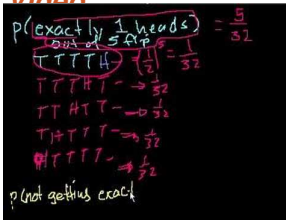 P(exactly 1 heads) = 5/32
out of 5 flips
T T T T H → (1/2)^5 = 1/32
T T T H T → 1/32
T T H T T → 1/32
T H T T T → 1/32
H T T T T → 1/32
P(not getting exact